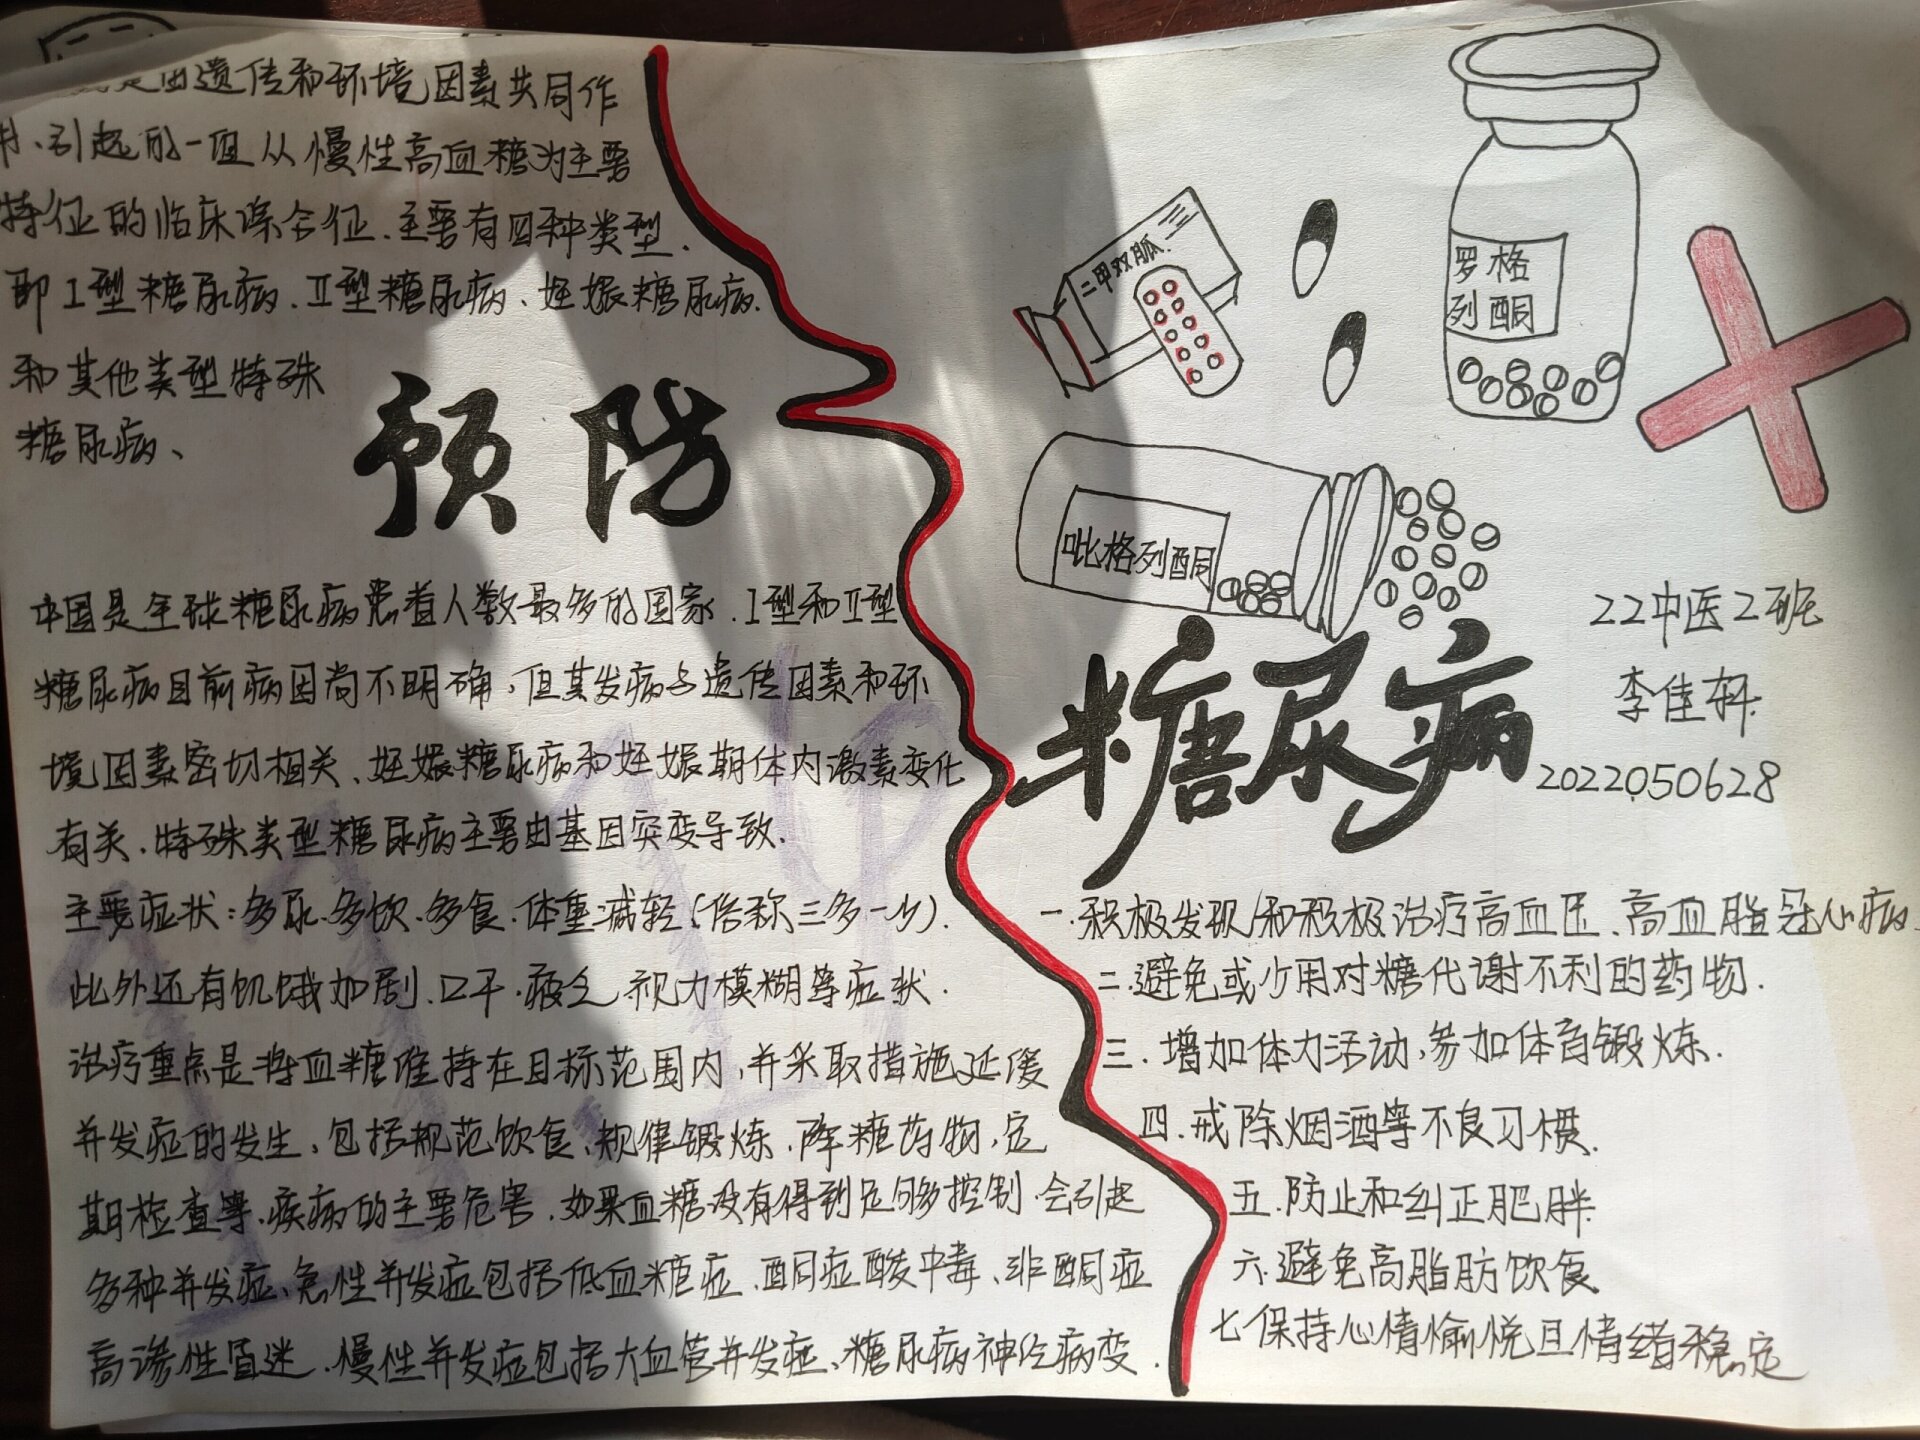 是由遗传和环境因素共同作
用、引起的一组以慢性高血糖为主要
特征的临床综合征.主要有四种类型.
即I型糖尿病.II型糖尿病、妊娠糖尿病.
和其他类型特殊
糖尿病、
预防
中国是全球糖尿病患者人数最多的国家.I型和II型
糖尿病目前病因尚不明确,但其发病与遗传因素和环
境因素密切相关、妊娠糖尿病和妊娠期体内激素变化
有关.特殊类型糖尿病主要由基因突变导致.
主要症状:多尿.多饮.多食.体重减轻(俗称三多一少).
此外还有饥饿加剧.口干.疲乏.视力模糊等症状.
治疗重点是将血糖维持在目标范围内,并采取措施延缓
并发症的发生、包括规范饮食、规律锻炼.降糖药物,定
期检查等.疾病的主要危害.如果血糖没有得到足够多控制.会引起
多种并发症、急性并发症包括低血糖症.酮症酸中毒、非酮症
高渗性昏迷.慢性并发症包括大血管并发症、糖尿病神经病变.
二甲双胍.
罗格
列酮
吡格列酮
糖尿病
22中医2班
李佳轩.
2022050628
一.积极发现和积极治疗高血压、高血脂冠心病.
二.避免或少用对糖代谢不利的药物.
三.增加体力活动,参加体育锻炼.
四.戒除烟酒等不良习惯.
五.防止和纠正肥胖.
六.避免高脂肪饮食
七保持心情愉悦且情绪稳定